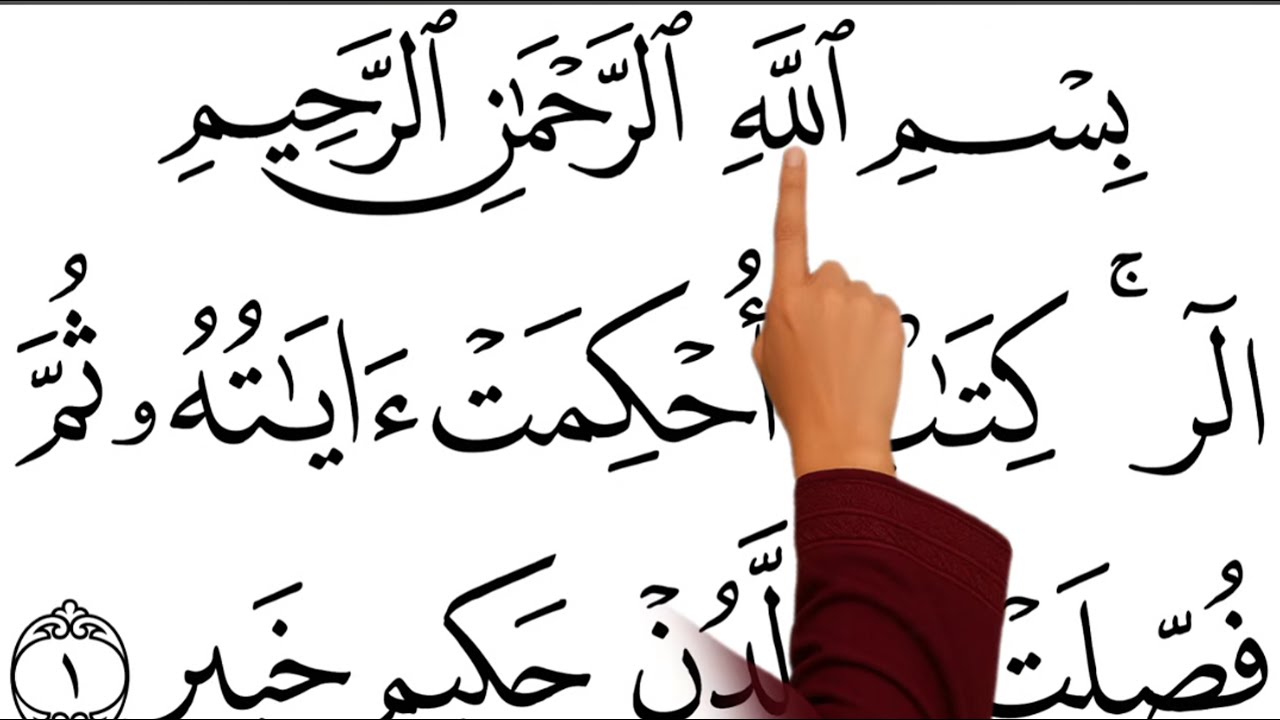 بِسْمِ ٱللَّهِ ٱلرَّحْمَٰنِ ٱلرَّحِيمِ
الٓر ۚ كِتَٰبٌ أُحْكِمَتْ ءَايَٰتُهُۥ ثُمَّ
فُصِّلَتْ لَّدُنْ حَكِيمٍ خَبِيرٍ ١